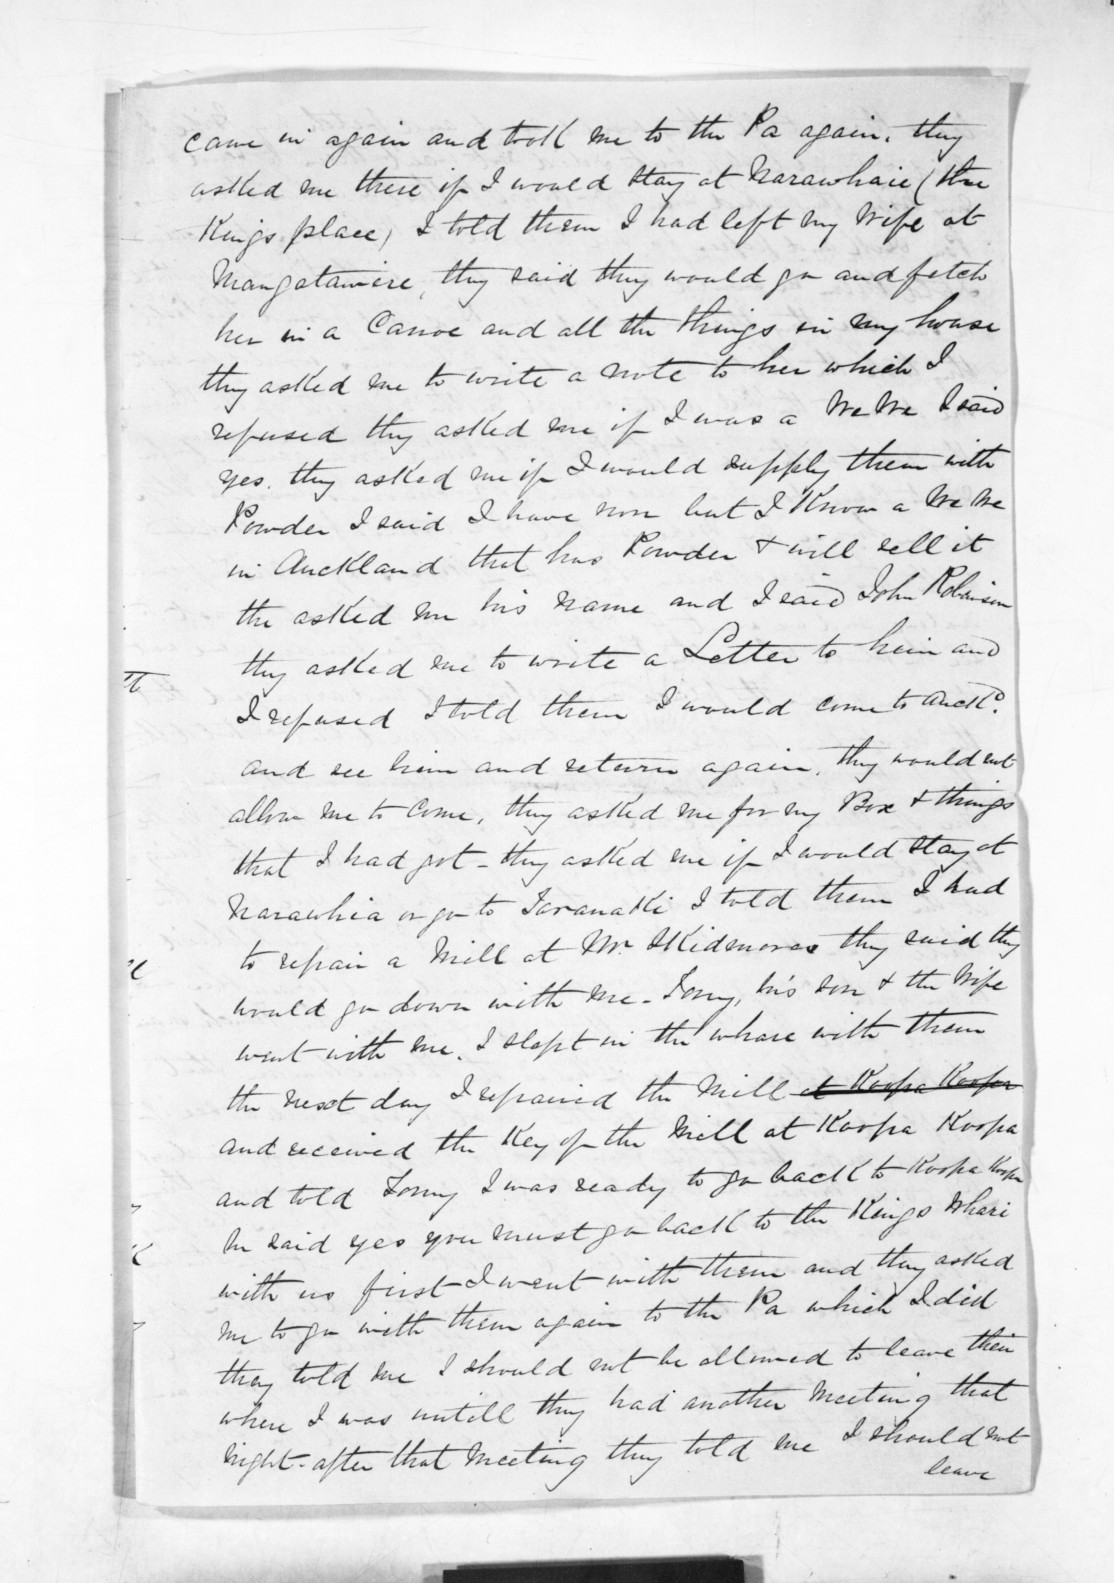 came in again and took me to the Pa again. they
asked me there if I would stay at Narawhaie (the
Kings place) I told them I had left my Wife at
Mangatawire, they said they would go and fetch
her in a Canoe and all the things in my house
they asked me to write a note to her which I
refused they asked me if I was a We We I said
yes. they asked me if I would supply them with
Powder I said I have non but I Know a We We
in Auckland that has Powder & will sell it
the asked me his name and I said John Robinson
they asked me to write a Letter to him and
I refused I told them I would come to Auckd.
and see him and return again, they would not
allow me to come, they asked me for my Box & things
that I had got - they asked me if I would stay at
Narawhia or go to Taranaki I told them I had
to repair a Mill at Mr. Skidmores they said they
would go down with me - Tomy, his son & the Wife
went with me. I slept in the whare with them
the next day I repaired the Mill at Koopa Koopa
and received the Key of the Mill at Koopa Koopa
and told Tomy I was ready to go back to Koopa Koopa
he said yes you must go back to the Kings Whari
with us first I went with them and they asked
me to go with them again to the Pa which I did
they told me I should not be allowed to leave their
where I was untill they had another Meeting that
night - after that Meeting they told me I should not
leave